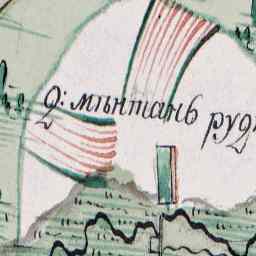 Д: мѣнтанъ руд